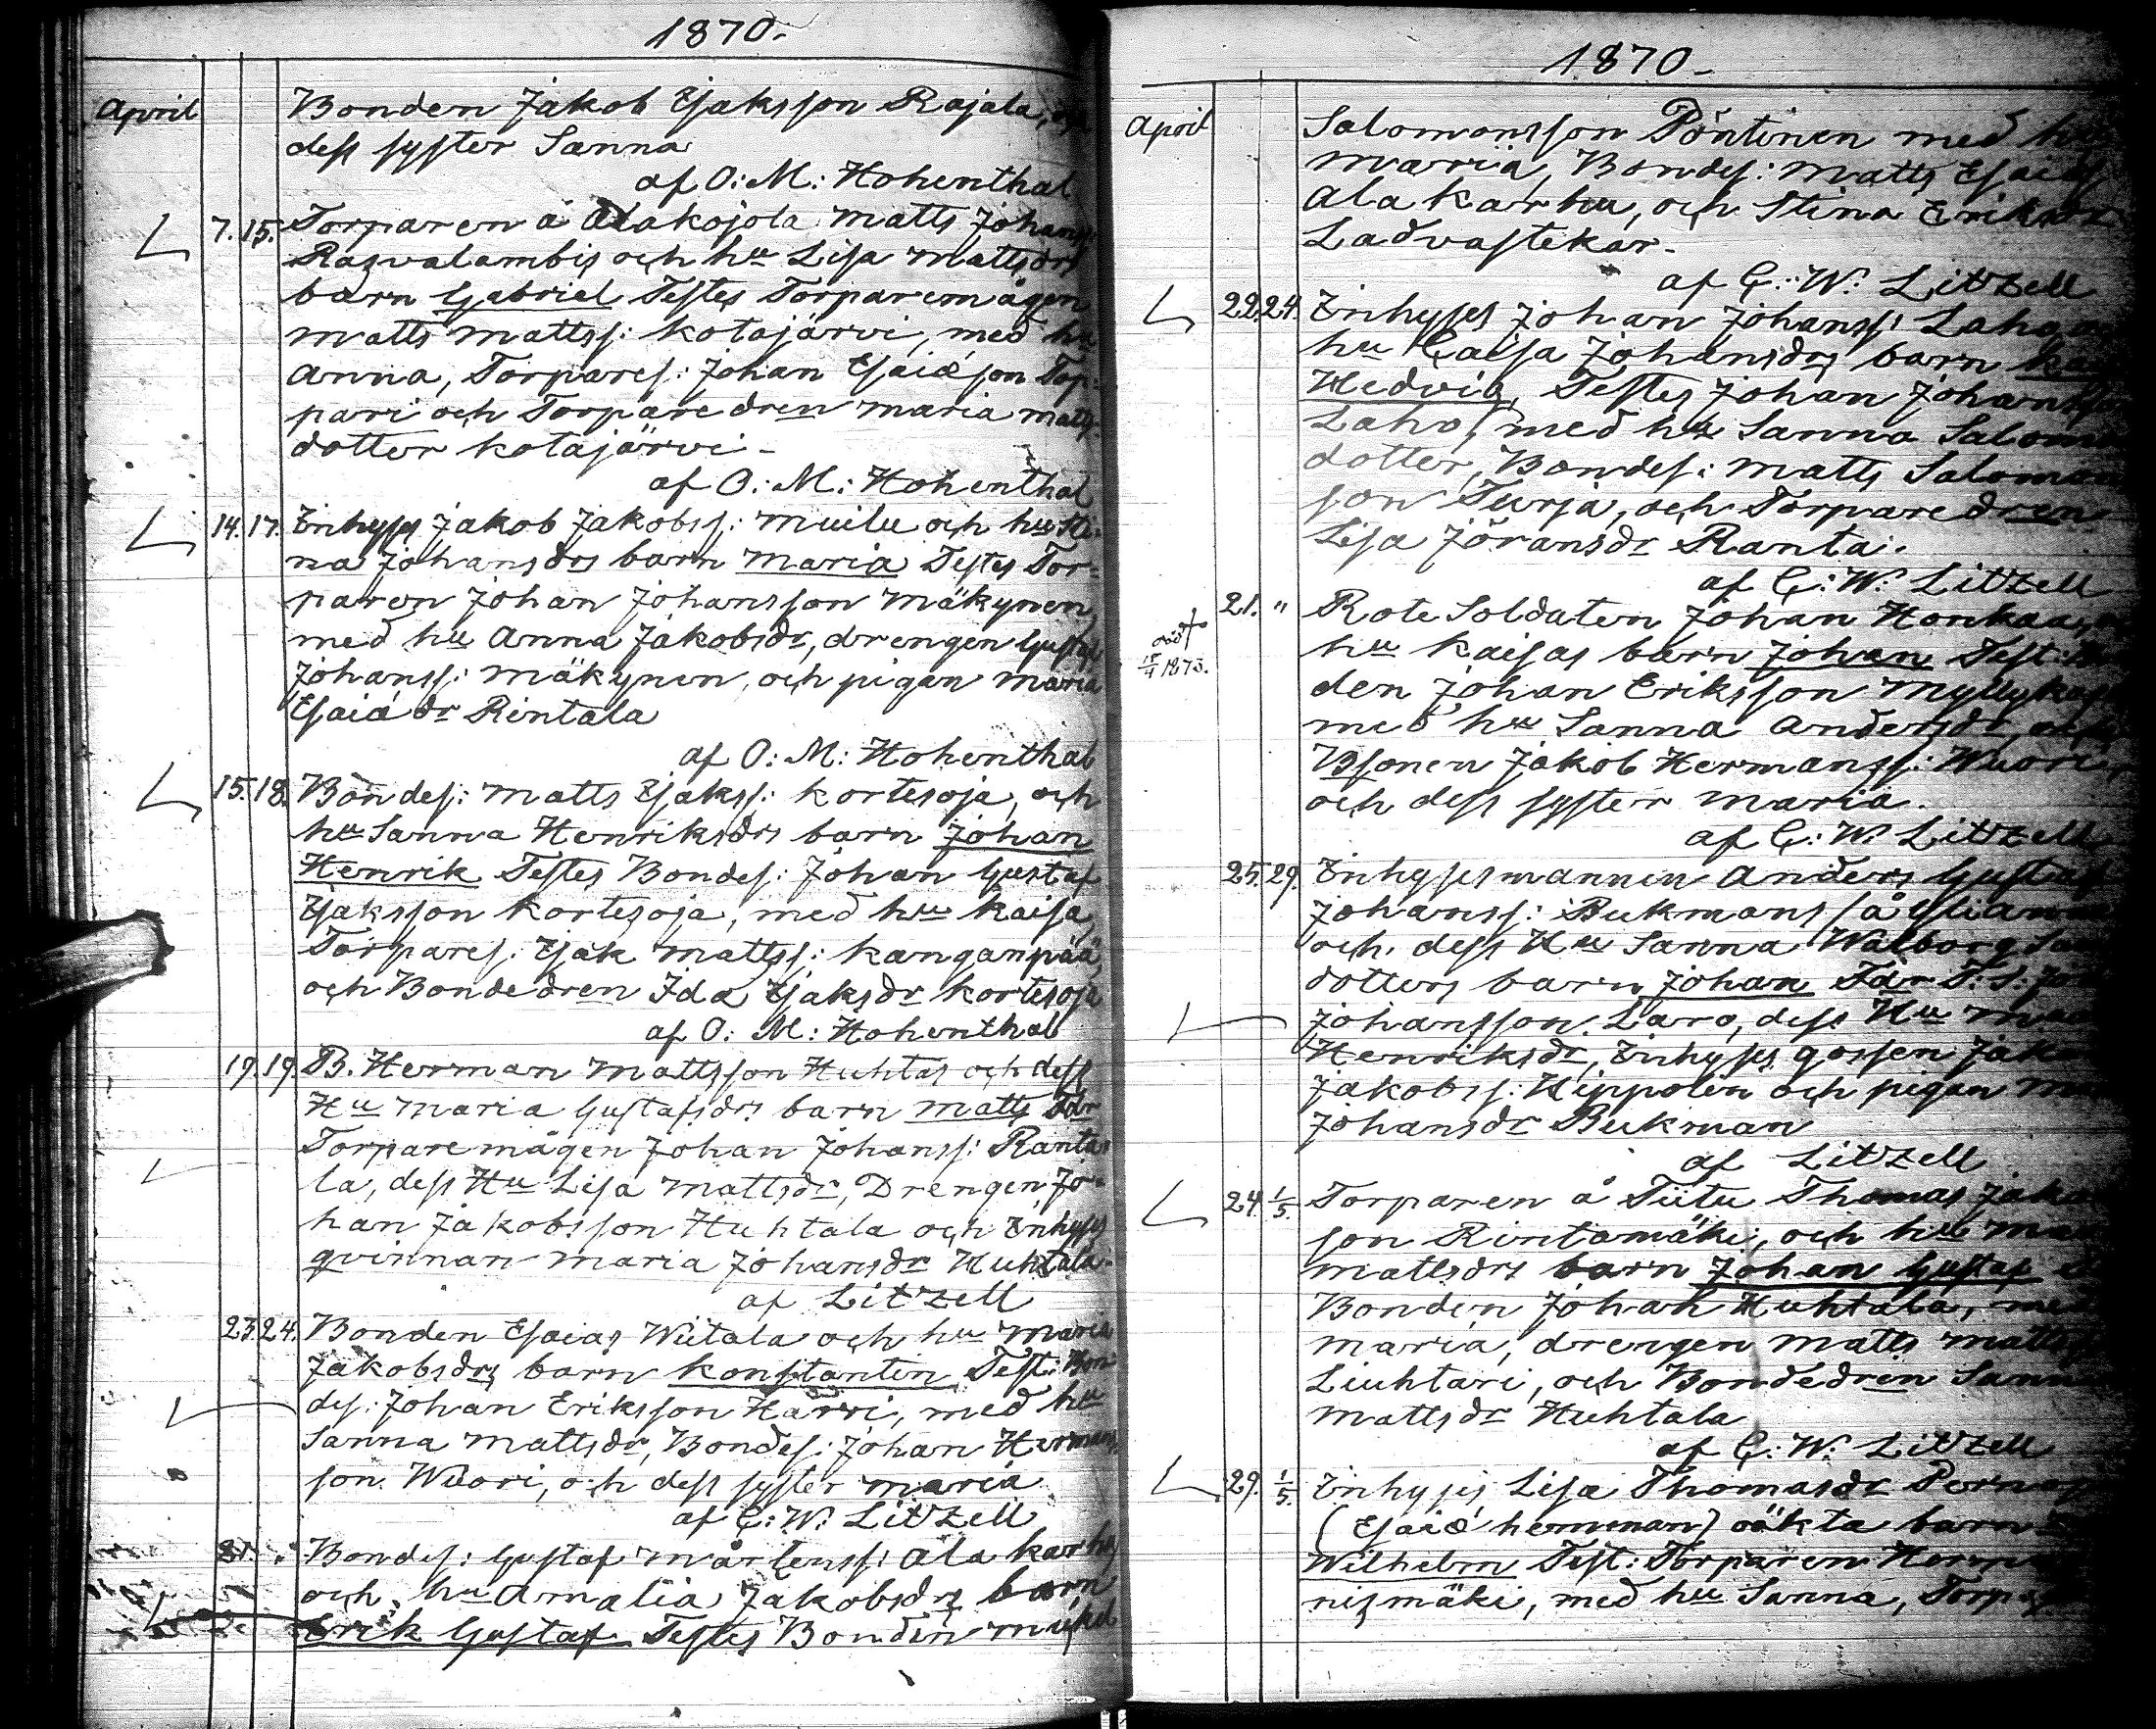 1870.
April
Bonden Jakob Esaksson Rajala, och
dess syster Sanna
af O: M: Hohenthal
7. 15. Torparen å Alakojola Matts Johanss:
och hu Lisa Mattsdrs
barn Gabriel Testes Torparemågen
Matts Mattss: Kotajärvi, med hu
Anna, Torpares: Johan Esaiæson Top-
pari och Torparedren Maria Matts-
dotter Kotajärvi -
af O: M: Hohenthal
14. 17. Inhyses Jakob Jakobss: Muilu och hu Sti-
na Johansdrs barn Maria Testes Tor-
paren Johan Johansson Mäkynen,
med hu Anna Jakobsdr, drengen Gustaf
Johanss: Mäkynen, och pigan Maria
Esaiædr Rintala
af O: M: Hohenthal
15. 18. Bondes: Matts Esakss: Kortesoja, och
hu Sanna Henriksdrs barn Johan
Henrik Testes Bondes: Johan Gustaf
Esaksson Kortesoja, med hu Kaisa,
Torpares: Esak Mattss: Kanganpää,
och Bondedren Ida Esaksdr Kortesoja
af O: M: Hohenthal
19. 19. B. Herman Mattsson Huhtas och dess
Hu Maria Gustafsdrs barn Matts Fdr
Torparemågen Johan Johanss: Ranta-
la, dess Hu Lisa Mattsdr, Drengen Jo-
han Jakobsson Huhtala och Inhyses
qvinnan Maria Johansdr Huhtala.
af Litzell
23. 24. Bonden Esaias Wiitala och hu Maria
Jakobsdrs barn Konstantin Test: Bon-
des: Johan Eriksson Harri, med hu
Sanna Mattsdr, Bondes: Johan Hermans
son Wuori, och dess syster Maria
af C: W: Litzell
21. " Bondes: Gustaf Mårtenss: Ala karhu
och hu Amalia Jakobsdrs barn
Erik Gustaf Testes Bonden Mickel
1870-
April
Salomonsson Pöntinen med hu
Maria, Bondes: Matts Esaiæs
Ala karhu, och Stina Eriksdr
Ladvastekar -
af C: W: Litzell
22. 24. Inhyses Johan Johanss: Laho, och
hu Caisa Johansdrs barn
Hedvig, Testes Johan Johansson
Laho, med hu Sanna Salomons
dotter, Bondes: Matts Salomon
son Turja, och Torparedren
Lisa Jöransdr Ranta.
af C: W: Litzell
död †
15/4 1873.
21. " Rote Soldaten Johan Honkaa, och
hu Kaisas barn Johan Test: Bon
den Johan Eriksson Myllykangas
med hu Sanna Andersdr,
Bsonen Jakob Hermanss: Wuori,
och dess syster Maria.
af C: W: Litzell
25. 29. Inhysesmannen Anders Gustaf
Johanss: Bukmans
och dess Hu Sanna Walborg
dotters barn Johan Fdr T: S:
Johansson Laro, dess Hu
Henriksdr, Inhyses gossen Jakob
Jakobss: Hippolin och pigan
Johansdr Bukman
af Litzell
24. 1/5. Torparen å Tiitu Thomas Jakob
son Rintamäki, och hu Maria
Mattsdrs barn Johan Gustaf
Bonden Johan Huhtala, med
Maria, drengen Matts Mattss
Liuhtari, och Bondedren Sanna
Mattsdr Huhtala
af C: W: Litzell
29. 1/5. Inhyses Lisa Thomasdr
(Esaiæ hemman) oäkta barn
Wilhelm Test: Torparen Herman
nismäki, med hu Sanna, Torp